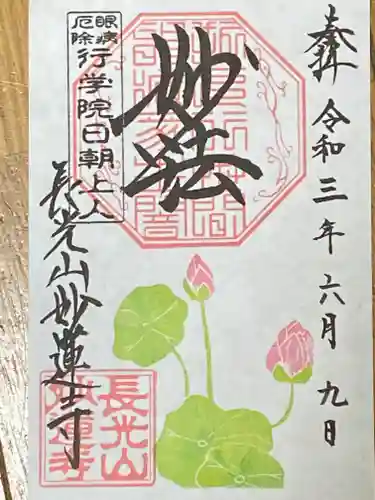 奉拝 令和三年六月九日
妙法
眼病
厄除
行学院日朝上人
長光山妙蓮寺
長光山
妙蓮寺